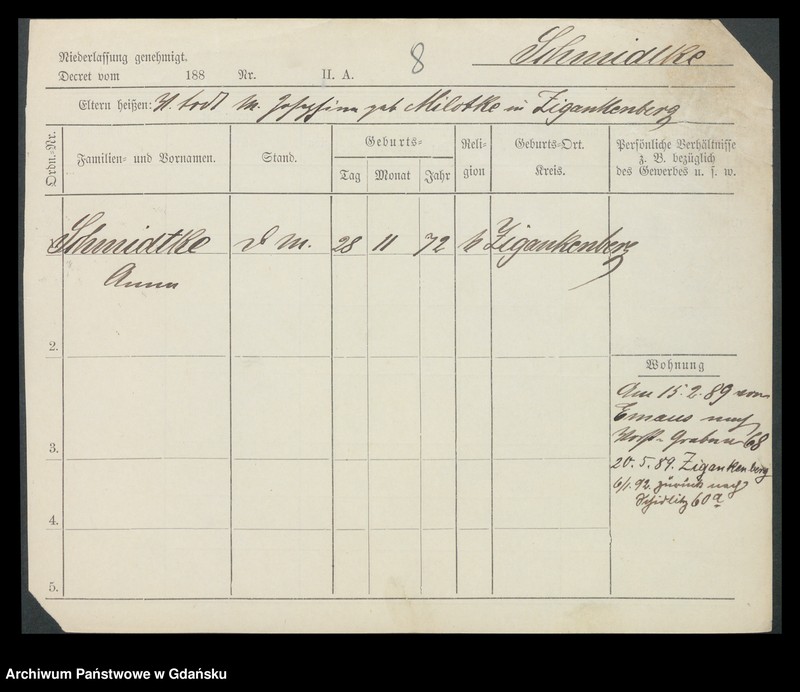 Schmidtke
8
Niederlassung genehmigt.
Decret vom 188 Nr. II. A.
Eltern heißen: V. todt M. Josephine geb Milotke in Zigankenberg
Ordn.-Nr.
Familien- und Vornamen.
Stand.
Geburts-
Tag Monat Jahr
Reli-
gion
Geburts-Ort.
Kreis.
Persönliche Verhältnisse
z. B. bezüglich
des Gewerbes u. s. w.
Schmidtke D M. 28 11 72 Zigankenberg
Anna
2.
3.
4.
5.
Wohnung
Am 15.2.89 von
Emaus nach
Vorst. Graben 68
20.5.89. Zigankenberg
6/1.92. zurück nach
Schidlitz 60a
Archiwum Państwowe w Gdańsku